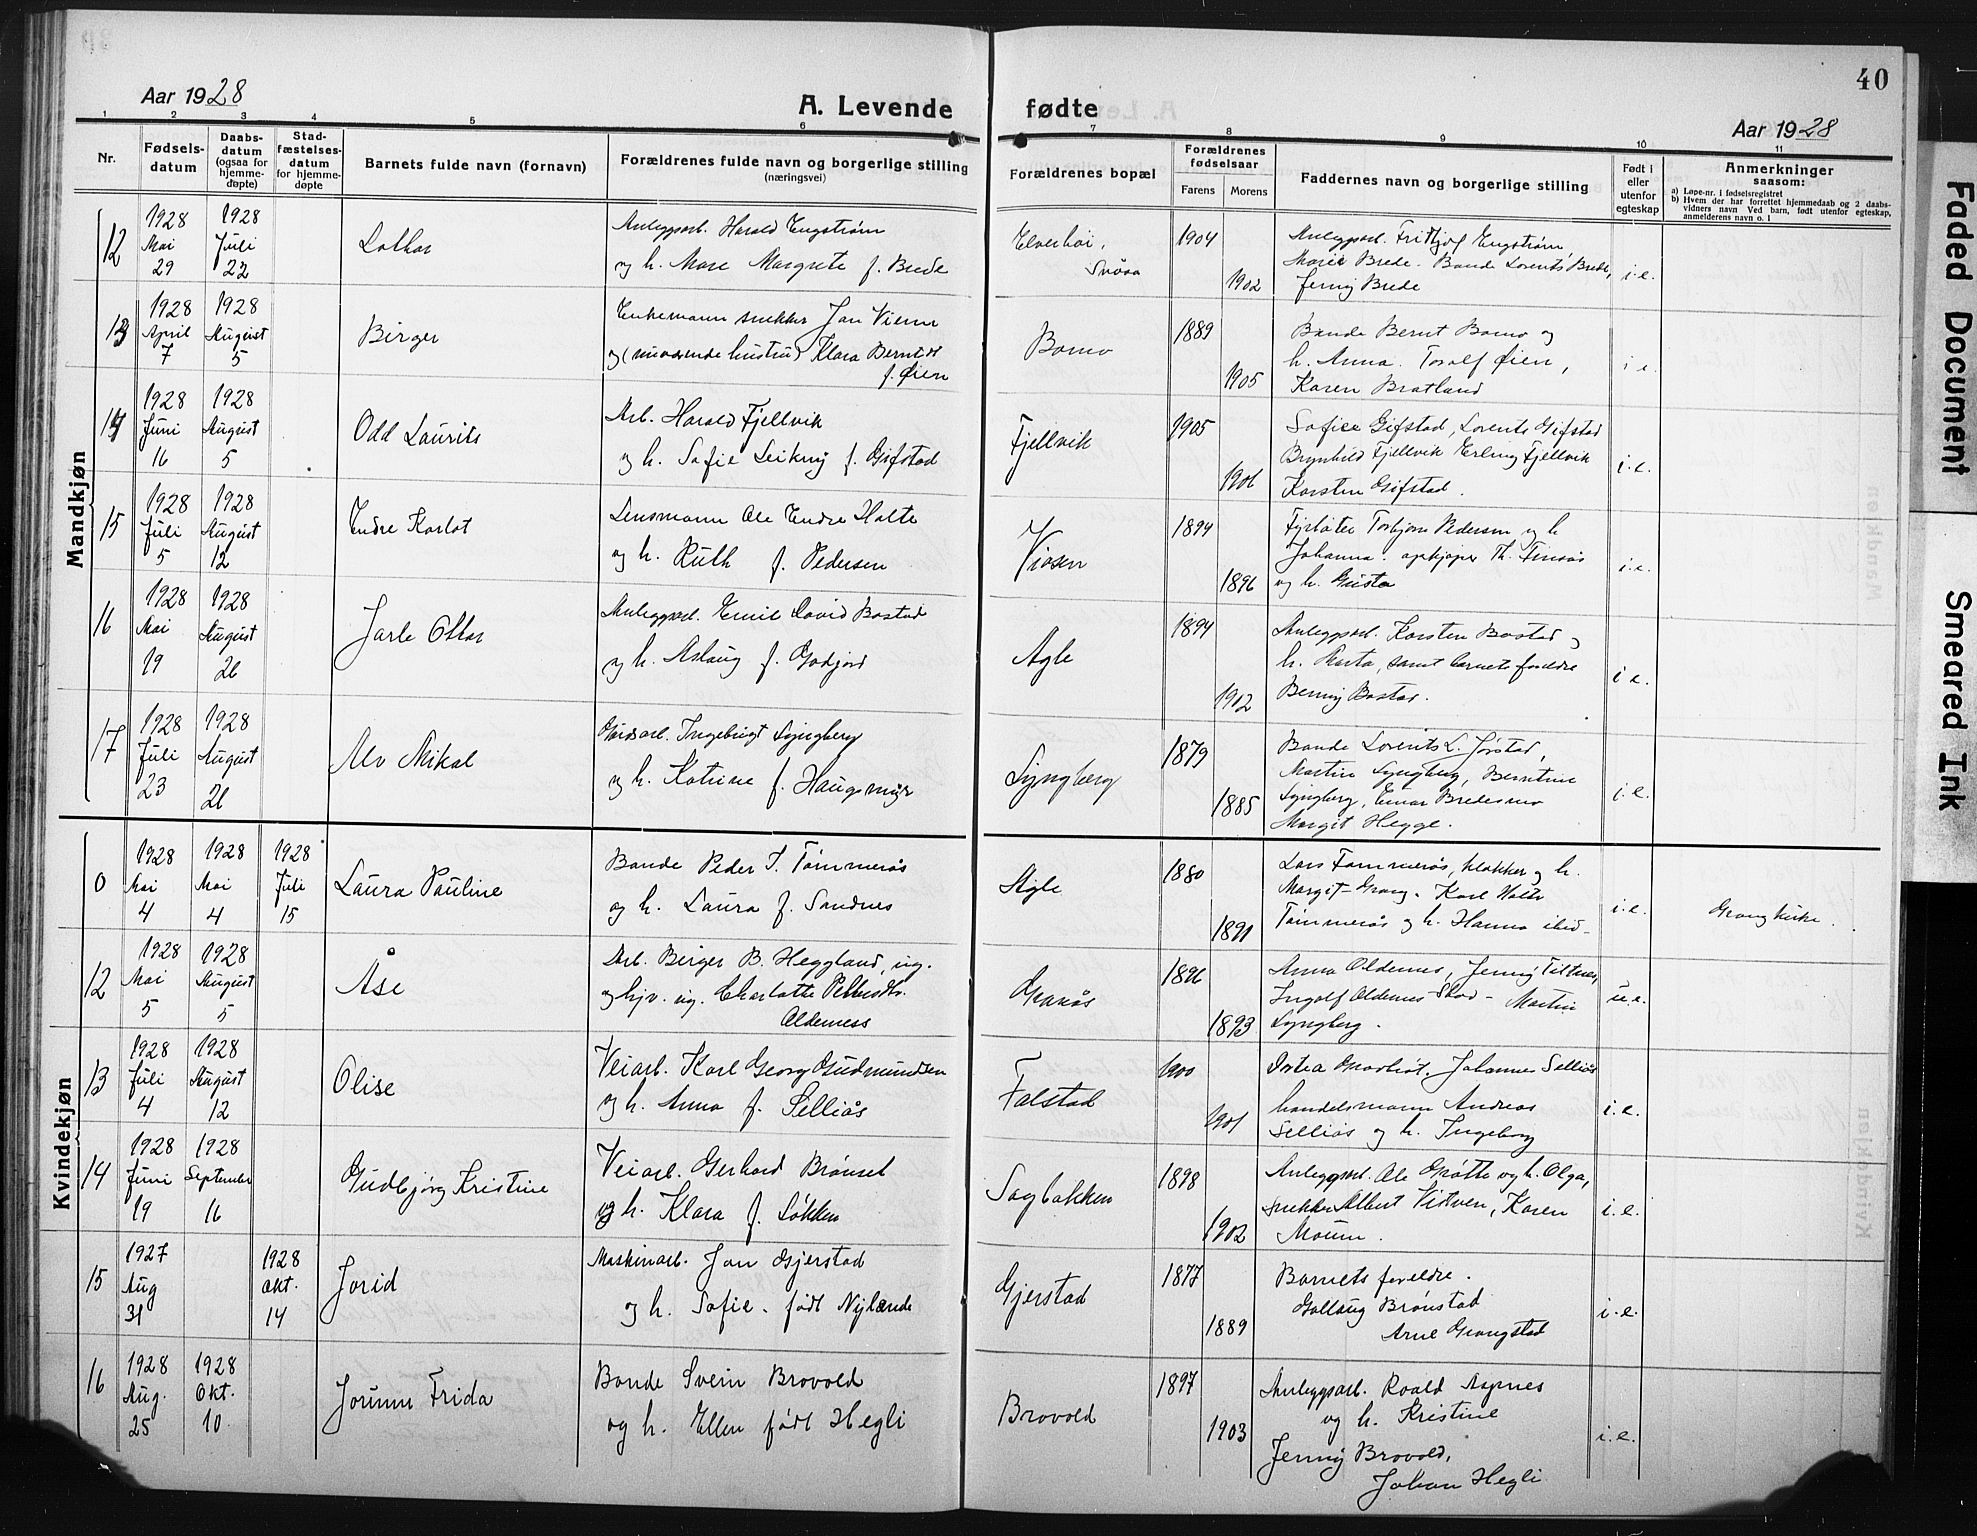 40
Aar 1928
A. Levende fødte
Aar 1928
1 2 3 4 5 6 7 8 9 10 11
Nr.
Fødselsdatum
Daabsdatum (ogsaa for hjemmedøpte)
Stadfæstelsesdatum for hjemmedøpte
Barnets fulde navn (fornavn)
Forældrenes fulde navn og borgerlige stilling (næringsvei)
Forældrenes bopæl
Forældrenes fødselsaar
Farens Morens
Faddernes navn og borgerlige stilling
Født i eller utenfor egteskap
Anmerkninger saasom:
a) Løpe-nr. i fødselsregistret
b) Hvem der har forrettet hjemmedaab og 2 daabsvidners navn Ved barn, født utenfor egteskap, anmelderens navn o. l
Mandkjøn
12
1928 Mai 29
1928 Juli 22
Lothar
Anleggsarb. Harald Engstrøm
og h. Mare Margrete f. Brede
Elverhøi, Snåsa
1904
1902
Anleggsarb. Fritjof Engstrøm,
Marie Brede. Bonde Lorents Brede,
Jenny Brede
i.e.
13
1928 April 7
1928 August 5
Birger
Enkemann snekker Jon Viem
og (nuværende hustru) Klara Berntdt
f. Øien
Bomo
1889
1905
Bonde Bernt Bomo og
h. Anna. Toralf Øien,
Karen Bratland
i e.
14
1928 Juni 16
1928 August 5
Odd Laurits
Arb. Harald Fjellvik
og h. Sofie Leikny f. Gifstad
Fjellvik
1905
1906
Sofie Gifstad, Lorents Gifstad
Brynhild Fjellvik Erling Fjellvik
Karsten Gifstad.
i.e.
15
1928 Juli 5
1928 August 12
Endre Karlot
Lensmann Ole Endre Holte
og h. Ruth f. Pedersen
Viosen
1894
1896
Fyrbøter Torbjørn Pedersen og h
Johanna. opkjøper Th. Finsås
og h. Gusta
i.e.
16
1928 Mai 19
1928 August 26
Jarle Ottar
Anleggsarb. Emil David Bostad
og h. Aslaug f. Godejord
Agle
1894
1902
Anleggsarb. Karsten Bostad og
h. Marta, samt barnets foreldre
Benny Bostad.
i e.
17
1928 Juli 23
1928 August 26
Alv Mikal
Gårdsarb. Ingebrigt Lyngberg
og h. Katrine f. Haugsmyr
Lyngberg
1879
1885
Bonde Lorents L. Jørstad,
Martin Lyngberg, Berntine
Lyngberg, Einar Bredesmo
Margit Hegge.
i.e.
Kvindekjøn
0
1928 Mai 4
1928 Mai 4
1928 Juli 15
Laura Pauline
Bonde Peder J. Tømmerås
og h. Laura f. Sandnes
Agle
1880
1891
Lars Tømmerås, klokker og h.
Margit - Grong. Karl
Tømmerås og h. Hanna ibid-
i.e.
Grong kirke.
12
1928 Mai 5
1928 August 5
Åse
Arb. Birger B. Heggland, ug.
og hjv. ug. Charlotte
Olderness
Granås
1896
1893
Anna Oldernes, Jenny
Ingolf Oldernes - Martin
Lyngberg.
u.e.
13
1928 Juli 4
1928 August 12
Olise
Veiarb. Karl Georg Gudmundsen
og h. Anna f. Selliås
Falstad
1900
1901
Johannes Selliås
handelsmann Andreas
Selliås og h. Ingeborg
i.e.
14
1928 Juni 19
1928 September 16
Gudbjørg Kristine
Veiarb. Gerhard Brønset
og h. Klara f. Løkken
Sagbakken
1898
1902
Anleggsarb. Ole Grøtte og h. Olga,
snekker Albert Vistven, Karen
Moum.
i.e.
15
1927 Aug 31
1928 Okt. 14
Jorid
Maskinarb. Jon Gjerstad
og h. Sofie. født Nylænde
Gjerstad
1877
1889
Barnets foreldre.
Gollaug Brønstad
Arne Grongstad
i.e.
16
1928 Aug. 25
1928 Okt. 10
Jorunn Frida
Bonde Svein Brovold
og h. Ellen født Hegli
Brovold
1897
1903
Anleggsarb. Roald Aspnes
og h. Kristine
Jenny Brovold,
Johan Hegli
i.e.
Faded Document
Smeared Ink